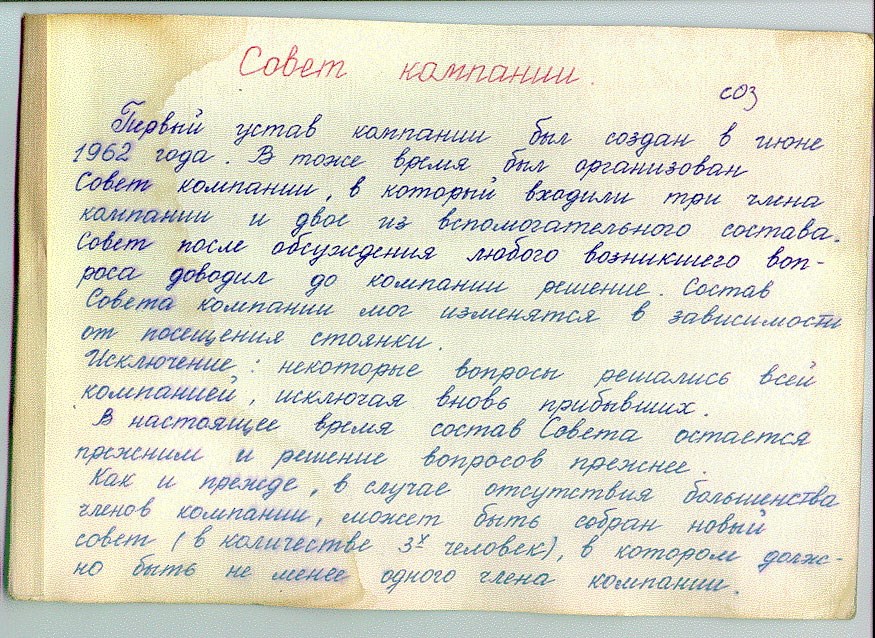 Совет компании.
СОЗ
Первый устав компании был создан в июне
1962 года. В тоже время был организован
Совет компании, в который входили три члена
компании и двое из вспомогательного состава.
Совет после обсуждения любого возникшего воп-
роса доводил до компании решение. Состав
Совета компании мог изменятся в зависимости
от посещения стоянки.
Исключение: некоторые вопросы решались всей
компанией, исключая вновь прибывших.
В настоящее время состав Совета остается
прежним и решение вопросов прежнее.
Как и прежде, в случае отсутствия большенства
членов компании, может быть собран новый
совет (в количестве 3х человек), в котором долж-
но быть не менее одного члена компании.